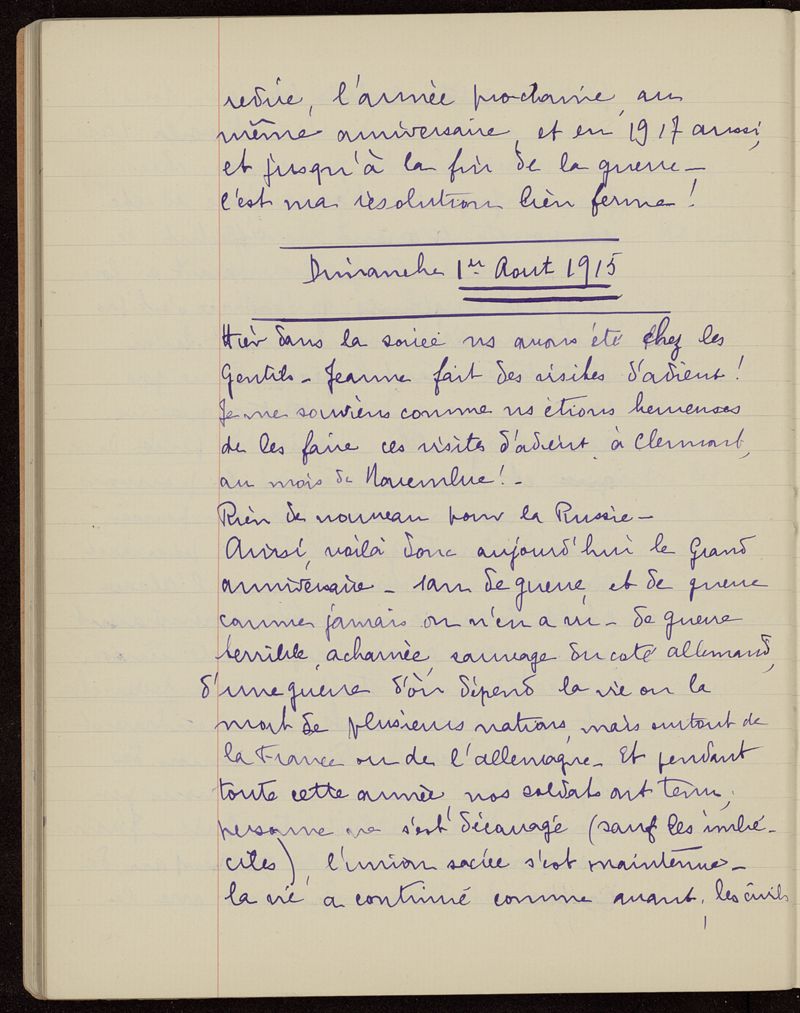 redire, l'année prochaine, au
même anniversaire, et en 1917 aussi,
et jusqu'à la fin de la guerre -
c'est ma résolution bien ferme !
Dimanche 1er Aout 1915
Hier dans la soirée ns avons été chez les
Gentils - Jeanne fait des visites d'adieu !
Je me souviens comme ns étions heureuses
de les faire ces visites d'adieu, à Clermont,
au mois de Novembre ! -
Rien de nouveau pour la Russie -
Ainsi, voilà donc aujourd'hui le Grand
anniversaire - 1 an de guerre, et de guerre
comme jamais on n'en a vu - de guerre
terrible, acharnée, sauvage du coté allemand,
d'une guerre d'où dépend la vie ou la
mort de plusieurs nations, mais surtout de
la France ou de l'allemagne - Et pendant
toute cette année, nos soldats ont tenu,
personne ne s'est découragé (sauf les imbé-
ciles), l'union sacrée s'est maintenue -
la vie a continué comme avant, les civils